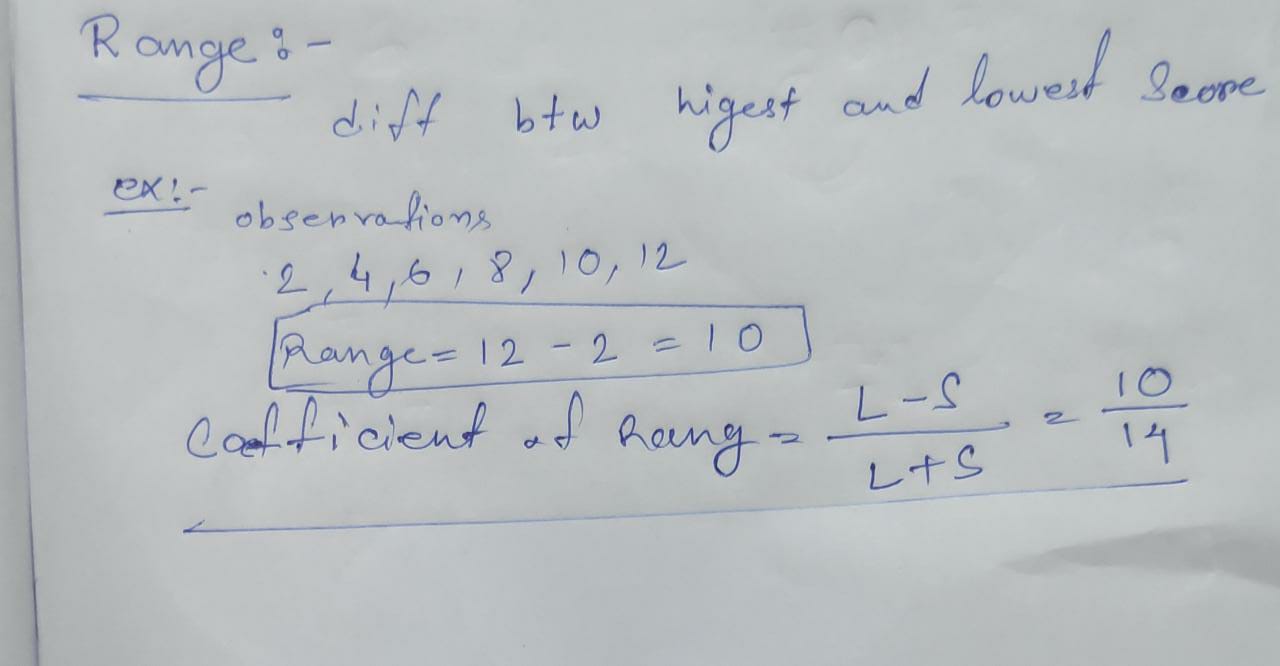 Range :-
diff btw higest and lowest Score
ex:-
observations
2, 4, 6, 8, 10, 12
Range = 12 - 2 = 10
Coefficient of Rang = L-S / L+S = 10 / 14